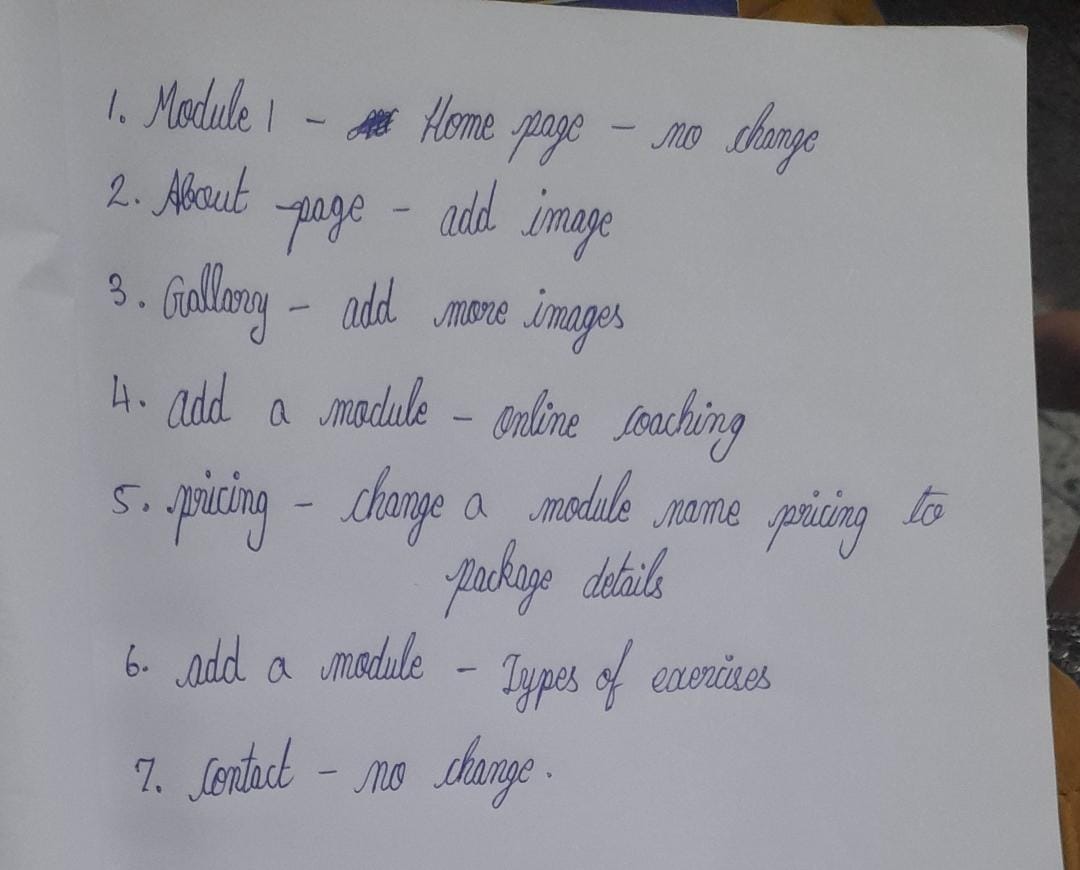 1. Module 1 - Home page - no change
2. About page - add image
3. Gallary - add more images
4. add a module - online coaching
5. pricing - change a module name pricing to
package details
6. add a module - Types of exercises
7. contact - no change.